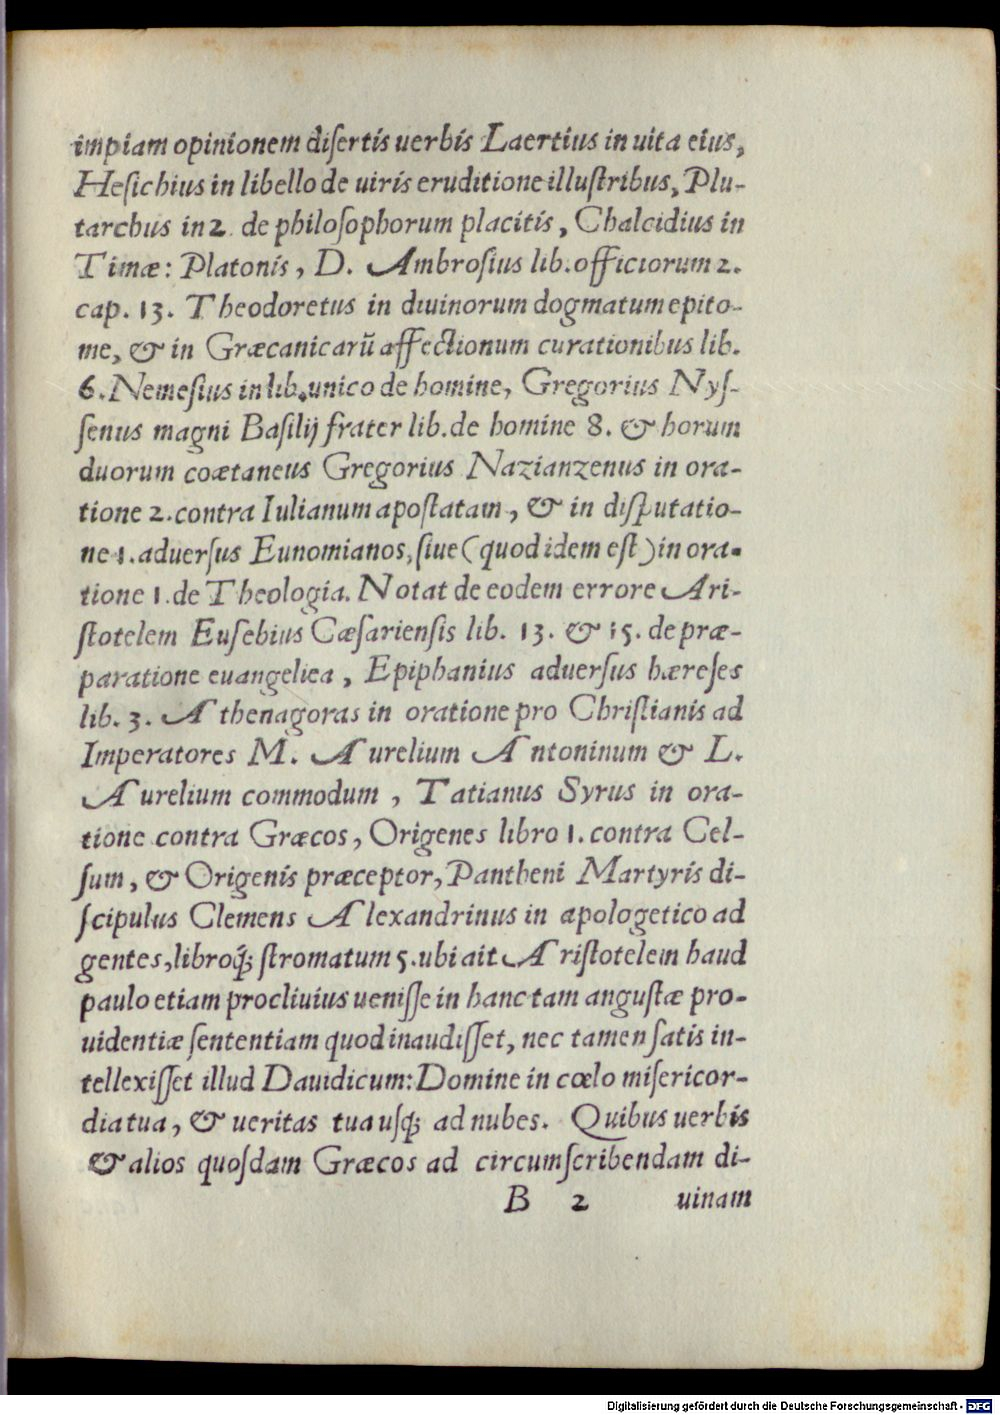 impiam opinionem diſertis uerbis Laertius in uita eius,
Heſichius in libello de uiris eruditione illuſtribus, Plu-
tarchus in 2. de philoſophorum placitis, Chalcidius in
Timæ: Platonis, D. Ambroſius lib. officiorum 2.
cap. 13. Theodoretus in diuinorum dogmatum epito-
me, & in Græcanicarū affectionum curationibus lib.
6. Nemeſius in lib. unico de homine, Gregorius Nyſ-
ſenus magni Baſilij frater lib. de homine 8. & horum
duorum coætaneus Gregorius Nazianzenus in ora-
tione 2. contra Iulianum apoſtatam, & in diſputatio-
ne 1. aduerſus Eunomianos, ſiue (quod idem eſt) in ora-
tione 1. de Theologia. Notat de eodem errore Ari-
ſtotelem Euſebius Cæſarienſis lib. 13. & 15. de præ-
paratione euangelica, Epiphanius aduerſus hæreſes
lib. 3. Athenagoras in oratione pro Chriſtianis ad
Imperatores M. Aurelium Antoninum & L.
Aurelium commodum, Tatianus Syrus in ora-
tione contra Græcos, Origenes libro 1. contra Cel-
ſum, & Origenis præceptor, Pantheni Martyris di-
ſcipulus Clemens Alexandrinus in apologetico ad
gentes, libroq́; ſtromatum 5. ubi ait Ariſtotelem haud
paulo etiam procliuius ueniſſe in hanc tam anguſtæ pro-
uidentiæ ſententiam quod inaudiſſet, nec tamen ſatis in-
tellexiſſet illud Dauidicum: Domine in cœlo miſericor-
dia tua, & ueritas tua uſq; ad nubes. Quibus uerbis
& alios quoſdam Græcos ad circumſcribendam di-
B 2 uinam
Digitalisierung gefördert durch die Deutsche Forschungsgemeinschaft - DFG